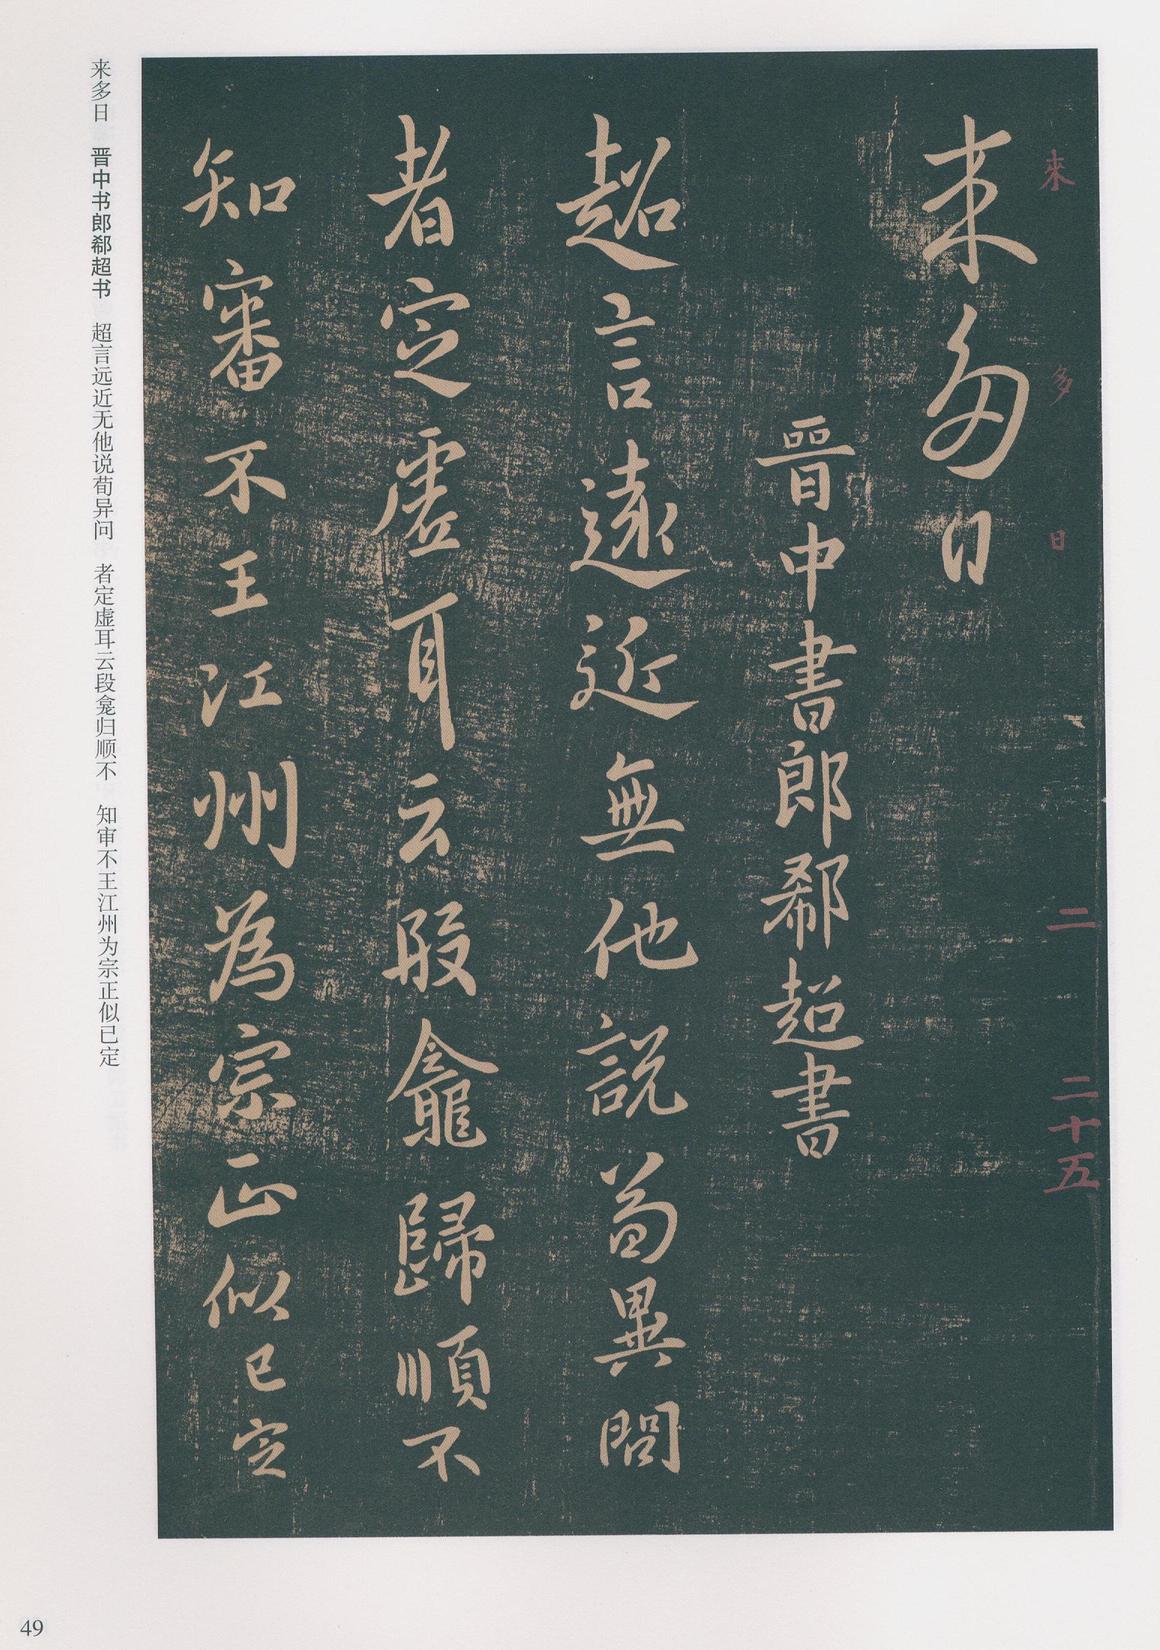 來
多
日
二
二十五
来多日
晋中書郎郗超書
超言遠近無他說荀異問
者定虛耳云段龕歸順不
知審不王江州為宗正似已定
来多日 晋中书郎郗超书 超言远近无他说荀异问 者定虚耳云段龛归顺不 知审不王江州为宗正似已定
49